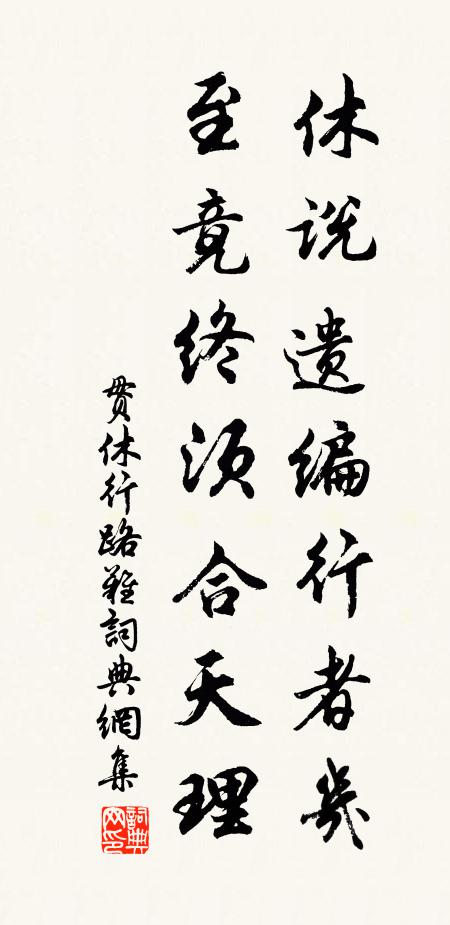 休说遗编行者几
至竟终须合天理
贯休行路难詞典網集
詞典网印